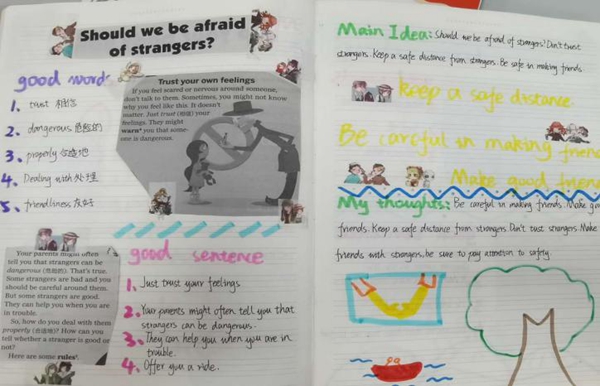 Should we be afraid
of strangers?
good words
1. trust 相信
2. dangerous 危险的
3. properly 合适地
4. Dealing with 处理
5. friendliness 友好
Trust your own feelings
If you feel scared or nervous around someone,
don't talk to them. Sometimes, you might not know
why you feel like this. It doesn't
matter. Just trust (相信) your
feelings. They might
warn* you that some-
one is dangerous.
Your parents might often
tell you that strangers can be
dangerous (危险的). That's true.
Some strangers are bad and you
should be careful around them.
But some strangers are good.
They can help you when you are
in trouble.
So, how do you deal with them
properly (合适地)? How can you
tell whether a stranger is good or
not?
Here are some rules*.
good sentence
1. Just trust your feelings
2. Your parents might often tell you that
strangers can be dangerous.
3. They can help you when you are in
trouble.
4. Offer you a ride.
Main Idea: Should we be afraid of strangers? Don't trust
strangers. Keep a safe distance from strangers. Be safe in making friends.
keep a safe distance.
Be careful in making frien
Make good frien
My thoughts: Be careful in making friends. Make g
friends. Keep a safe distance from strangers. Don't trust strangers. Make
friends with strangers, be sure to pay attention to safety.